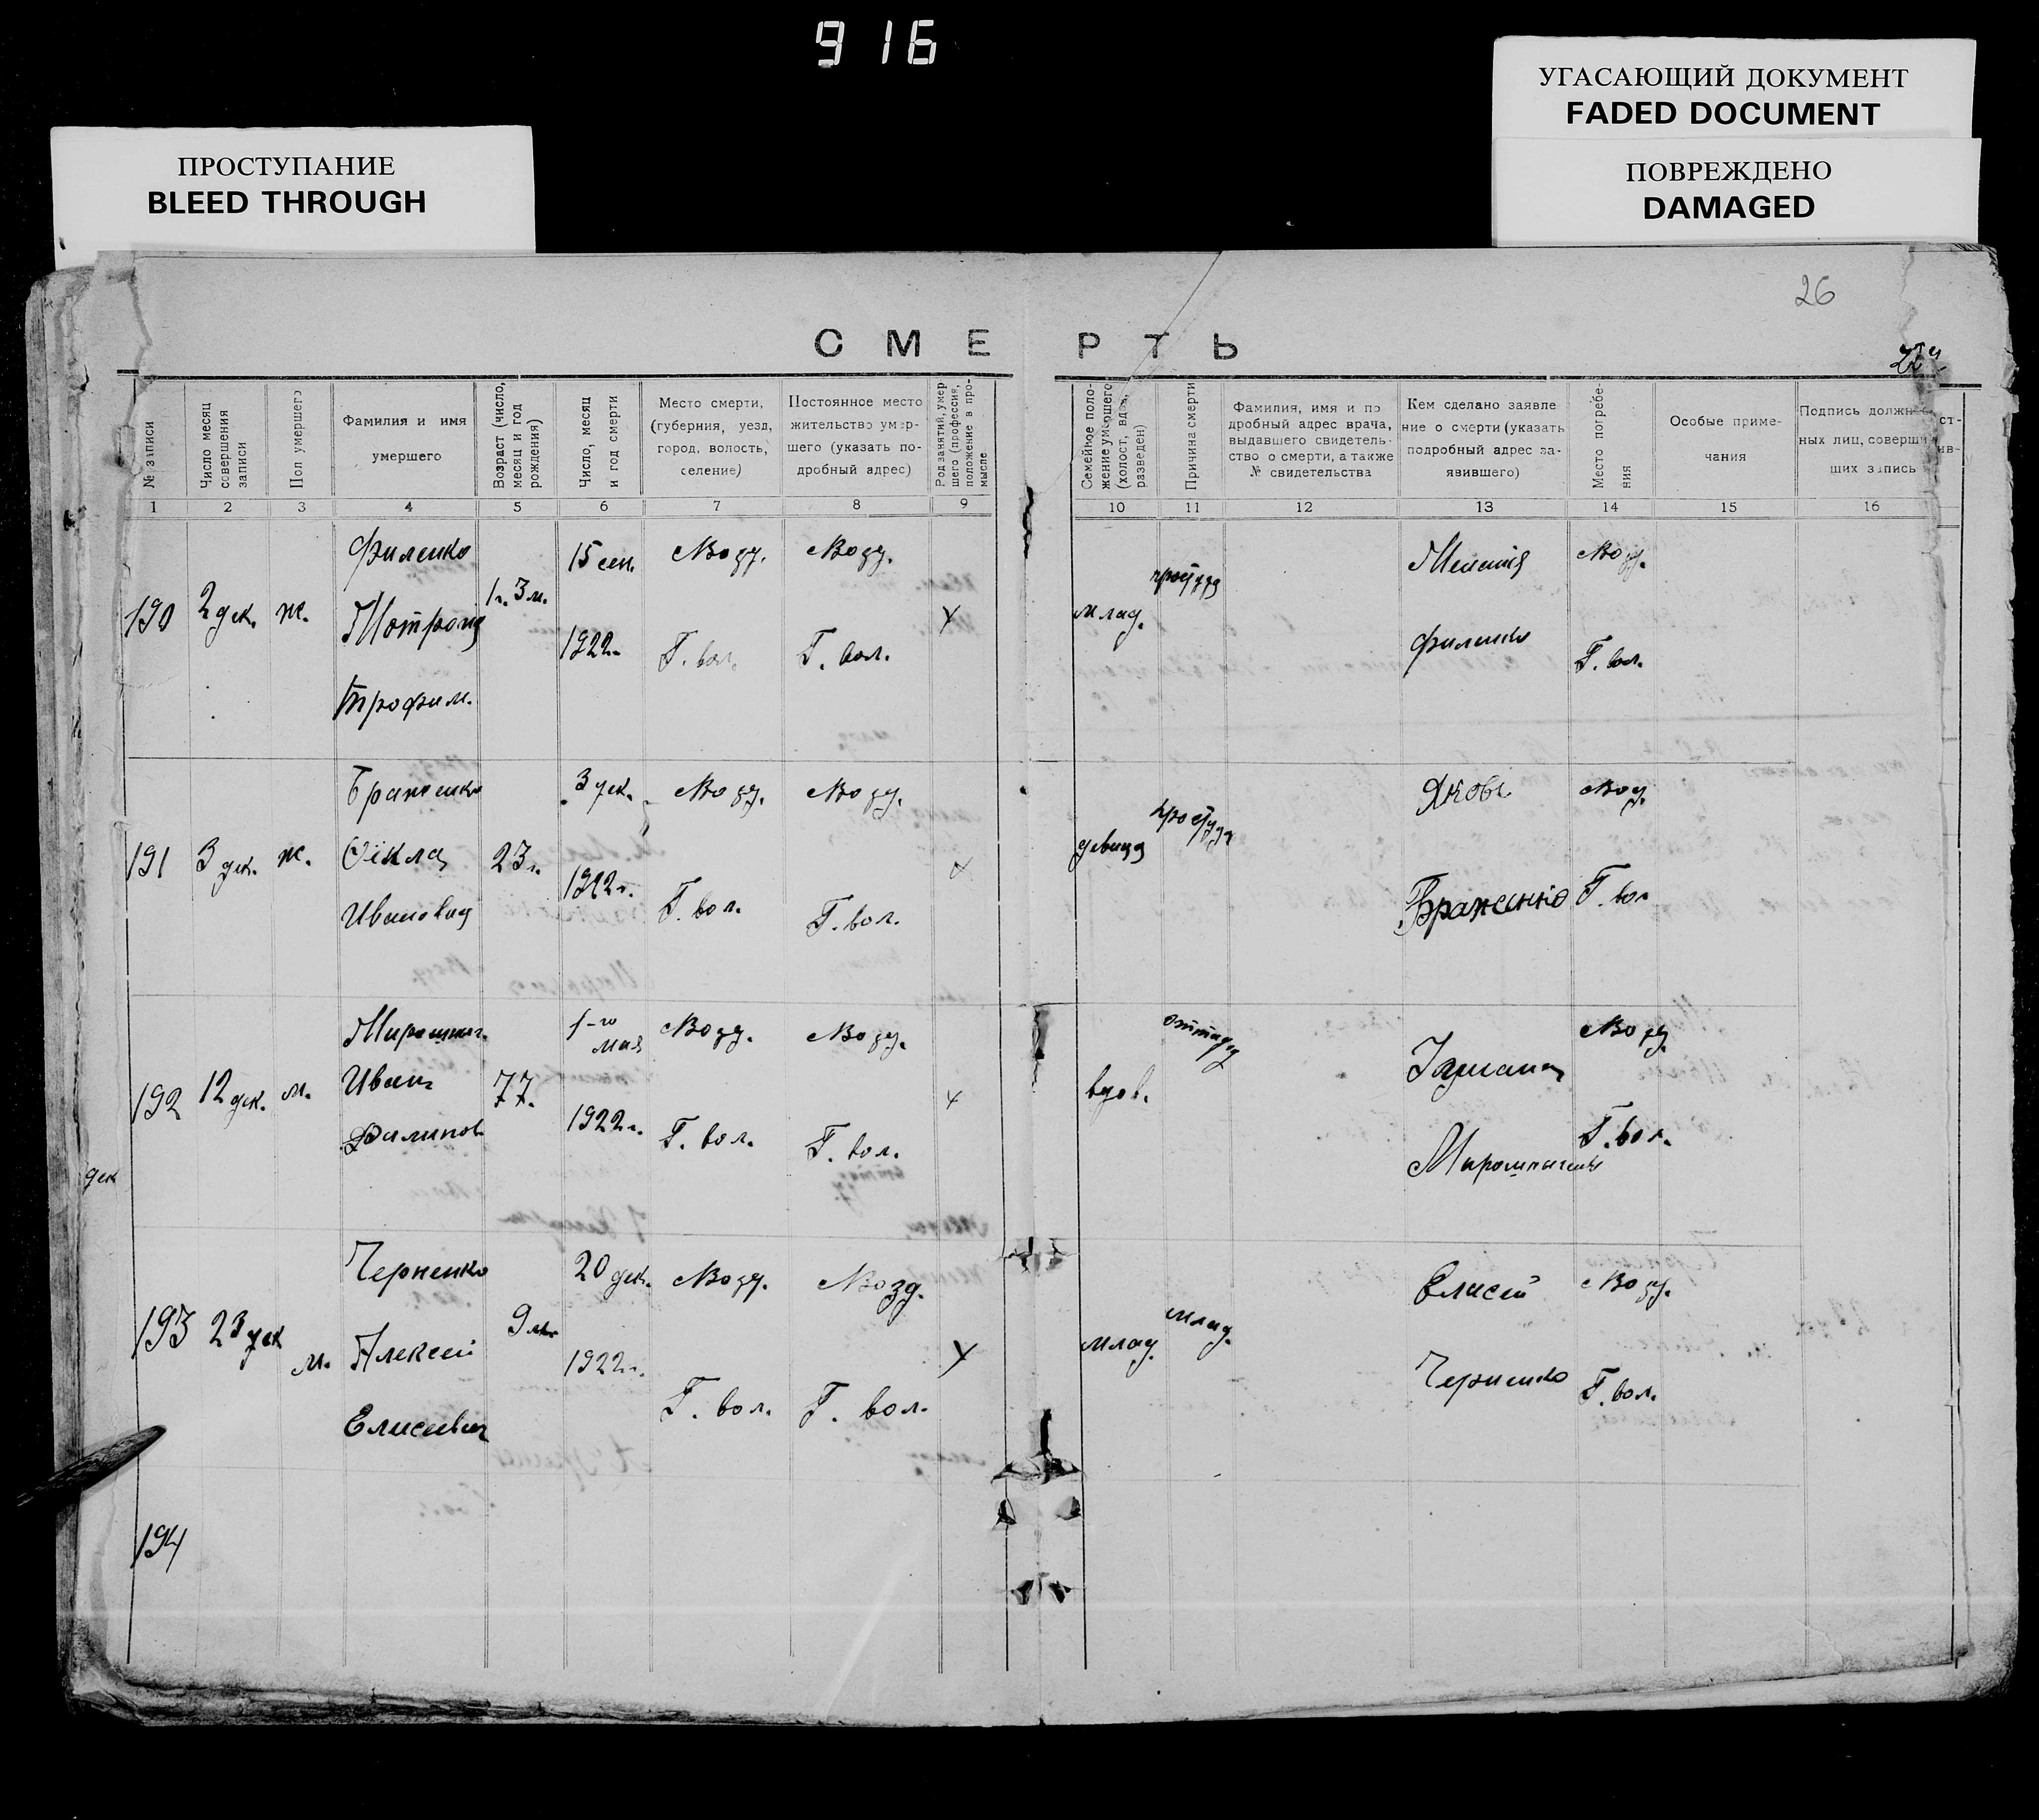 916
УГАСАЮЩИЙ ДОКУМЕНТ
FADED DOCUMENT
ПОВРЕЖДЕНО
DAMAGED
ПРОСТУПАНИЕ
BLEED THROUGH
26
СМЕРТЬ
№ записи
Число месяц
совершения
записи
Пол умершего
Фамилия и имя
умершего
Возраст (число,
месяц и год
рождения)
Число, месяц
и год смерти
Место смерти,
(губерния, уезд,
город, волость,
селение)
Постоянное место
жительство умер-
шего (указать по-
дробный адрес)
Род занятий, умер
шего (профессия,
положение в про-
мысле
Семейное поло-
жение умершего
(холост, вдов,
разведен)
Причина смерти
Фамилия, имя и по
дробный адрес врача,
выдавшего свидетель-
ство о смерти, а также
№ свидетельства
Кем сделано заявле
ние о смерти (указать
подробный адрес за-
явившего)
Место погребе-
ния
Особые приме-
чания
Подпись должнос
ных лиц, соверши
ших запись
ст-
ив-
1 2 3 4 5 6 7 8 9 10 11 12 13 14 15 16
190
2 дек.
ж.
Филенко
Мотрона
Трофим.
1 г. 3 м.
15 сен.
1922 г.
Возд.
Г. вол.
Возд.
Г. вол.
х
млад.
простуда
Филенко
Возд.
Г. вол.
191
3 дек.
ж.
Ивановна
23 г.
3 дек.
1922 г.
Возд.
Г. вол.
Возд.
Г. вол.
х
девица
простуда
Яковъ
Браженко
Возд.
Г. вол.
192
12 дек.
м.
Мирошнич.
Иван
77.
1-го
мая
1922 г.
Возд.
Г. вол.
Возд.
Г. вол.
х
вдов.
Мирошниченко
Возд.
Г. вол.
дек
193
23 дек
м.
Черненко
Алексей
Елисеевич
9 м.
20 дек.
1922 г.
Возд.
Г. вол.
Возд.
Г. вол.
х
млад.
млад.
Елисей
Черненко
Возд.
Г. вол.
194